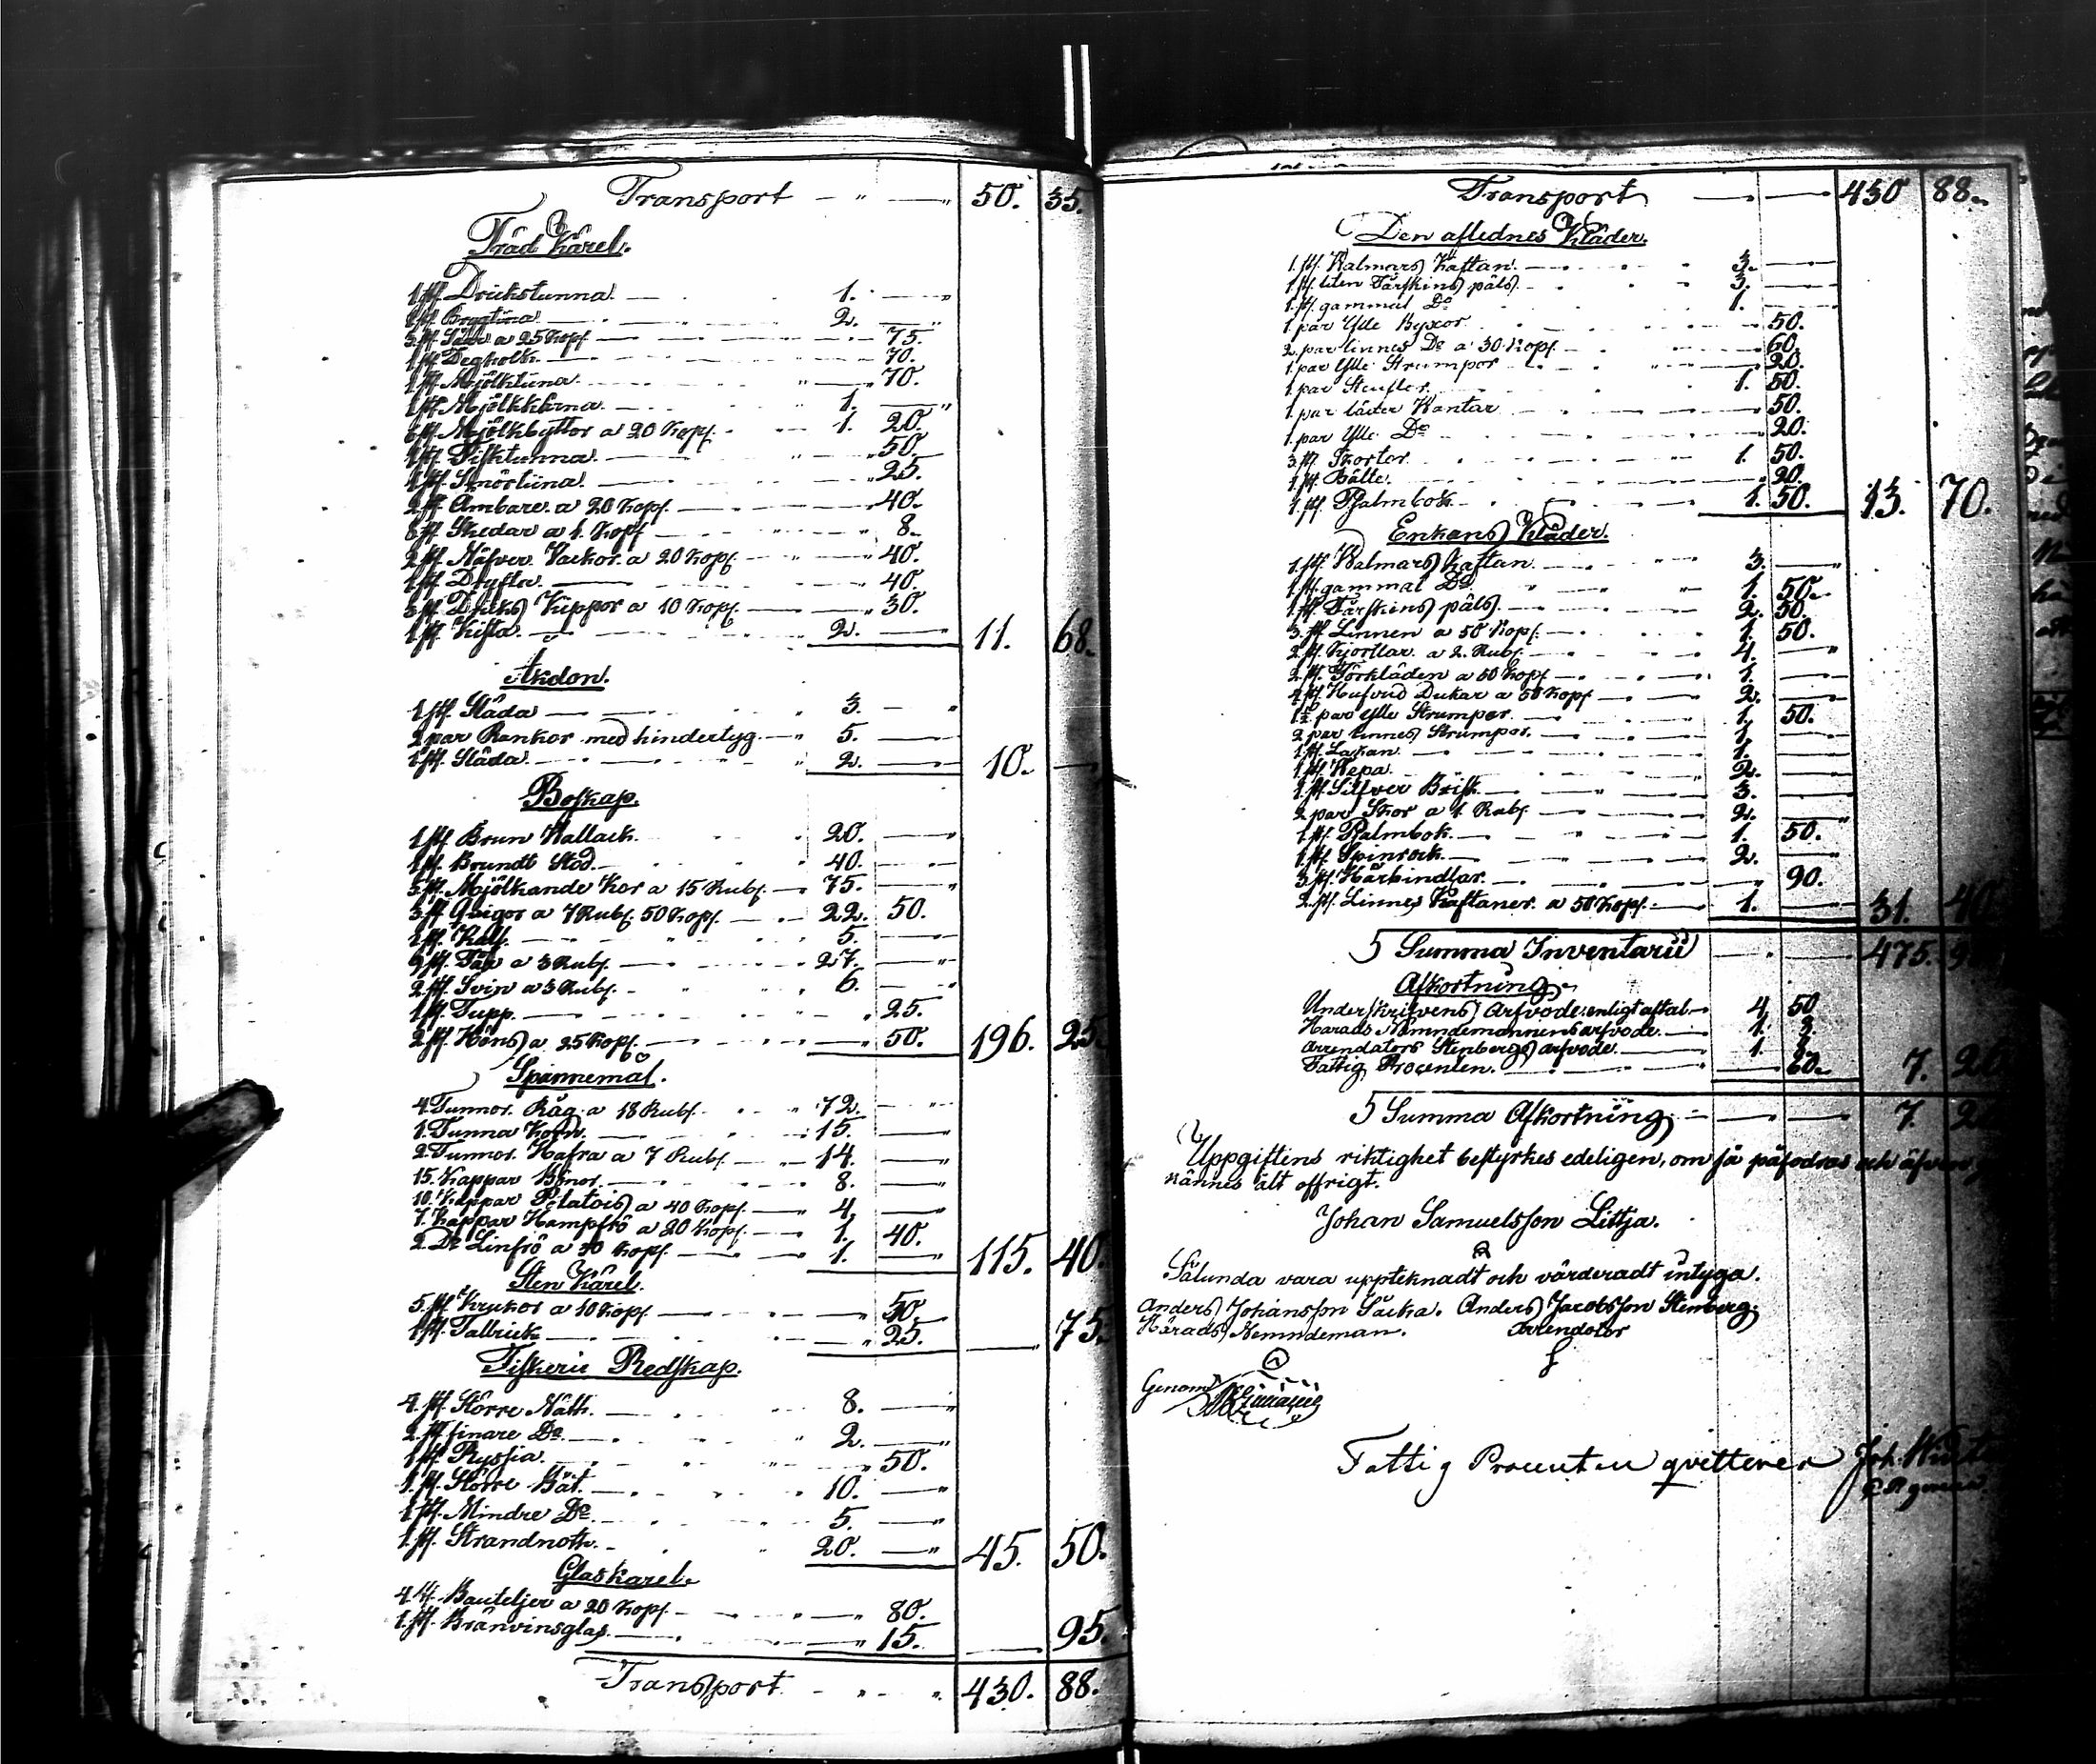 Transport 50. 35.
Träd Kärel.
1. st. Drickstunna. 1.
1. st. Bryggtina 2.
3. st. Såar a 25 Kopf 75.
1. st. Degholk. 70.
1. st. Mjölktina. 70.
1. st. Mjölkkärna. 1.
6. st. Mjölkbyttor a 20 Kopf. 1. 20.
1. st. Fisktunna. 50.
1. st. Smörtina. 25.
2. st. Ambare. a 20 Kopf. 40.
8. st. Skedar a 1. Kopf 8.
2. st. Näfver Vackor. a 20 Kopf 40.
1. st. Dryfta. 40.
3. st. Dricks Kippor a 10 Kopf. 30.
1. st. Kista. 2. 11. 68.
Åkdon.
1. st. Släda 3.
2 par Rankor med hindertyg. 5.
1. st. Släda. 2. 10.
Boskap.
1. st. Brun Wallack. 20.
1. st. Brundt Stod 40.
5. st. Mjölkande Kor a 15 Rubf. 75.
3. st. Qvigor a 7 Rubf. 50 Kopf. 22. 50.
1. st. Kalf. 5.
9. st. Får a 3 Rubf. 27.
2. st. Svin a 3 Rubf. 6.
1. st. Tupp. 25.
2. st. Höns a 25 Kopf. 50. 196. 25.
Spannemål.
4. Tunnor. Råg. a 18 Rubf. 72.
1. Tunna Korn. 15.
2. Tunnor. Hafra a 7 Rubf. 14.
15. Kappar Bönor. 8.
10. Kappar Pitatois a 40 Kopf. 4.
7. Kappar Hampfrö a 20 Kopf. 1. 40.
2. Do Linfrö a 50 Kopf. 1. 115. 40.
Sten Kärel.
5. st. Krukor a 10 Kopf. 50.
1. st. Tallrick 25. 75.
Fiskerie Redskap.
4. st. Större Näth. 8.
2. st. finare Do. 2.
1. st. Ryssia. 50.
1. st. Större Båt. 10.
1. st. Mindre Do. 5.
1. st. Strandnoth. 20. 45. 50.
Glaskärel.
4 st. Bauteljer a 20 Kopf. 80.
1. st. Bränvinsglas. 15. 95.
Transport 430. 88.
Transport 430 88.
Den aflednes Kläder.
1. st. Walmars Kaftan. 3.
1. st. liten Fårskins päls. 3.
1. st. gammal Do 1.
1. par Ylle Byxor. 50.
2. par linnes Do a 30 Kopf. 60.
1. par Ylle Strumpor 20.
1. par Stuflor. 1. 50.
1. par läder Wantar 50.
1. par Ylle Do 20.
3. st. Skortor 1. 50.
1. st. Bälte. 20.
1. st. Psalmbok 1. 50. 13. 70.
Enkans Kläder.
1. st. Walmars Kaftan 3.
1. st. gammal Do 1. 50.
1. st. Fårskins päls. 2. 50.
3. st. Linnen a 50 Kopf. 1. 50.
2. st. Kjortlar. a 2. Rubf. 4.
2. st. Förkläden a 50 Kopf 1.
4. st. Hufvud Dukar a 50 Kopf 2.
1. par Ylle Strumpor. 1. 50.
2 par linnes Strumpor. 1.
1. st. Lakan 1.
1. st. Kepa. 2.
1. st. Silfver Brisk. 3.
2. par Skor a 1. Rubf 2.
1. st. Psalmbok. 1. 50.
1. st. Spinrock. 2.
3. st. Hårbindlar. 90.
2. st. Linnes Kaftaner. a 50 Kopf. 1. 31. 40
S Summa Inventarii 475.
Afkortning.
Underskrifvens Arfvode enligt aftal 4 50
Härads Nämndemannens arfvode. 1.
Arrendators Stenbergs arfvode. 1.
Fattig Procenten. 60. 7.
S Summa Afkortning 7.
Uppgiftens riktighet bestyrkes edeligen, om så påfodras och äfven
kännes alt offrigt.
Johan Samuelsson Lillja.
Sålunda vara uppteknadt och värderadt intyga.
Anders Johansson Säcka. Anders Jacobsson Stenberg.
Härads Nemndeman. Arrendator
Genom
Fattig Procenten qvitterer Joh.